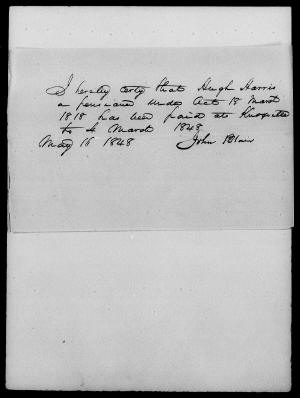 I hereby certy that Hugh Harris
a pensioner under Act 18 March
1818 has been paid at Knoxville
to 4 March 1848
May 16 1848 John